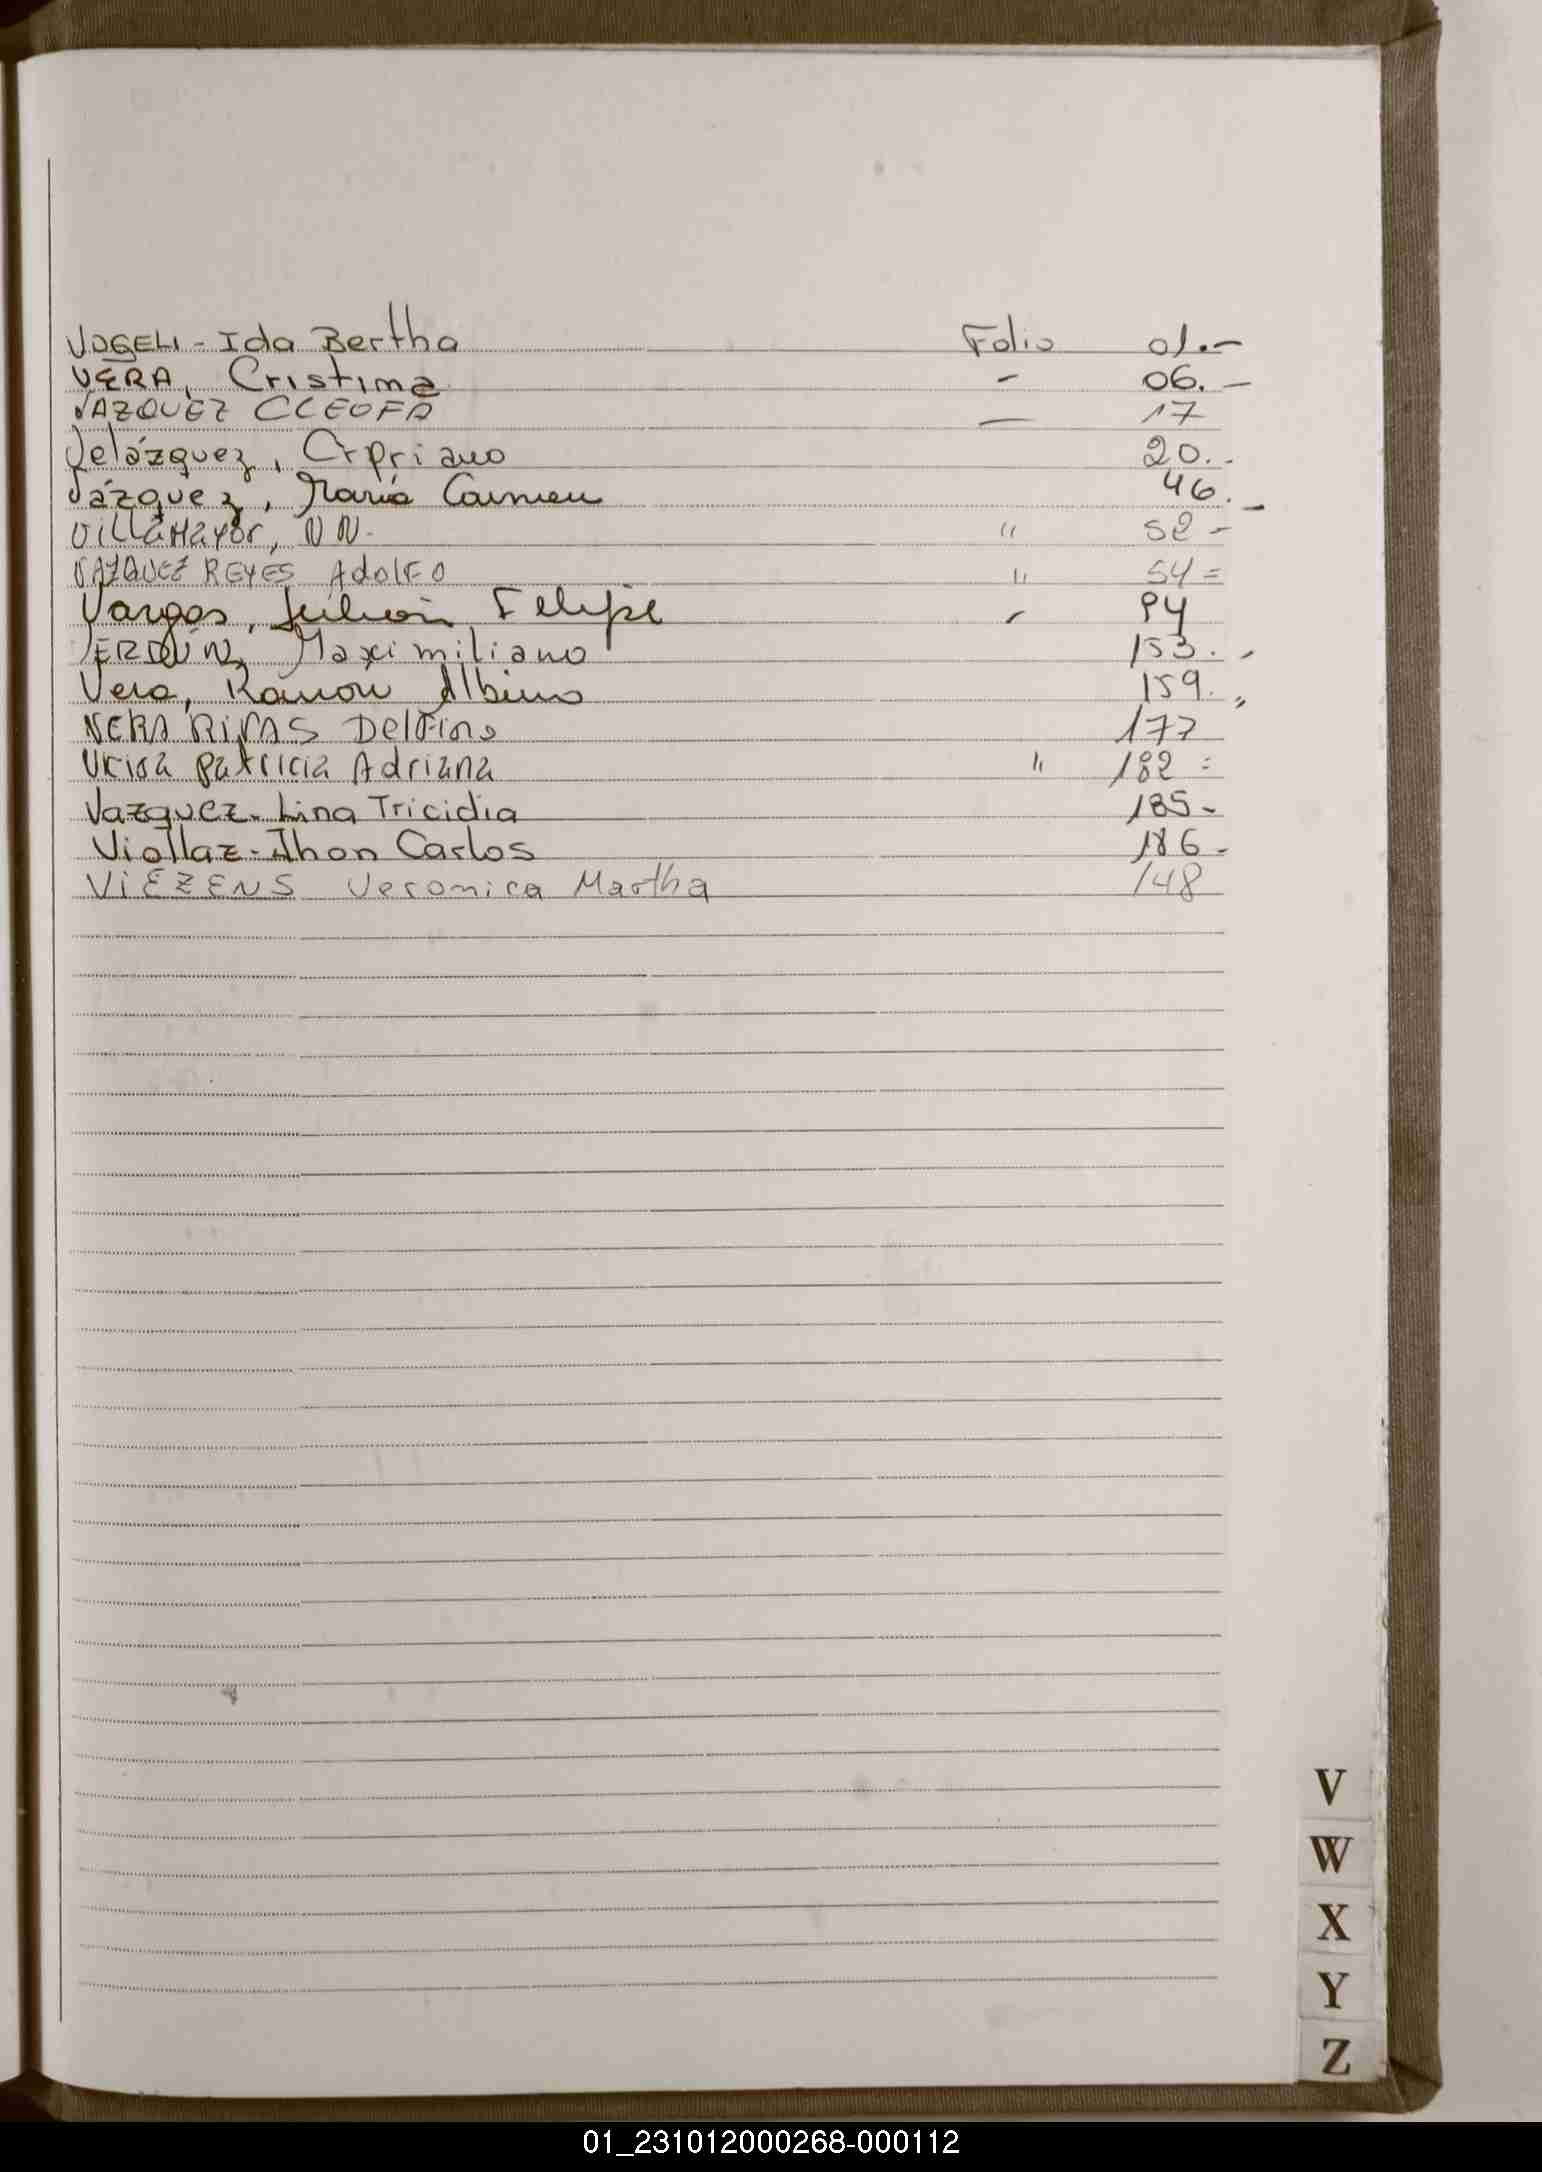 VOGELI - Ida Bertha Folio 01.-
VERA, Cristina - 06.-
VAZQUEZ CLEOFA - 17
Velázquez, Cipriano 20.-
Vázquez, María Carmen 46.-
VillaMayor, NN. " 52 -
VAZQUEZ REYES Adolfo " 54 =
Vargas, Julián Felipe - 94
VERDÚN, Maximiliano 153.-
Vera, Ramón Albino 159.-
VERA RIVAS Delfino 177
Patricia Adriana " 182 =
Vazquez - Lina Tricidia 185-
Viollaz - Jhon Carlos 186-
ViEZENS Veronica Martha 148
V
W
X
Y
Z
01_231012000268-000112